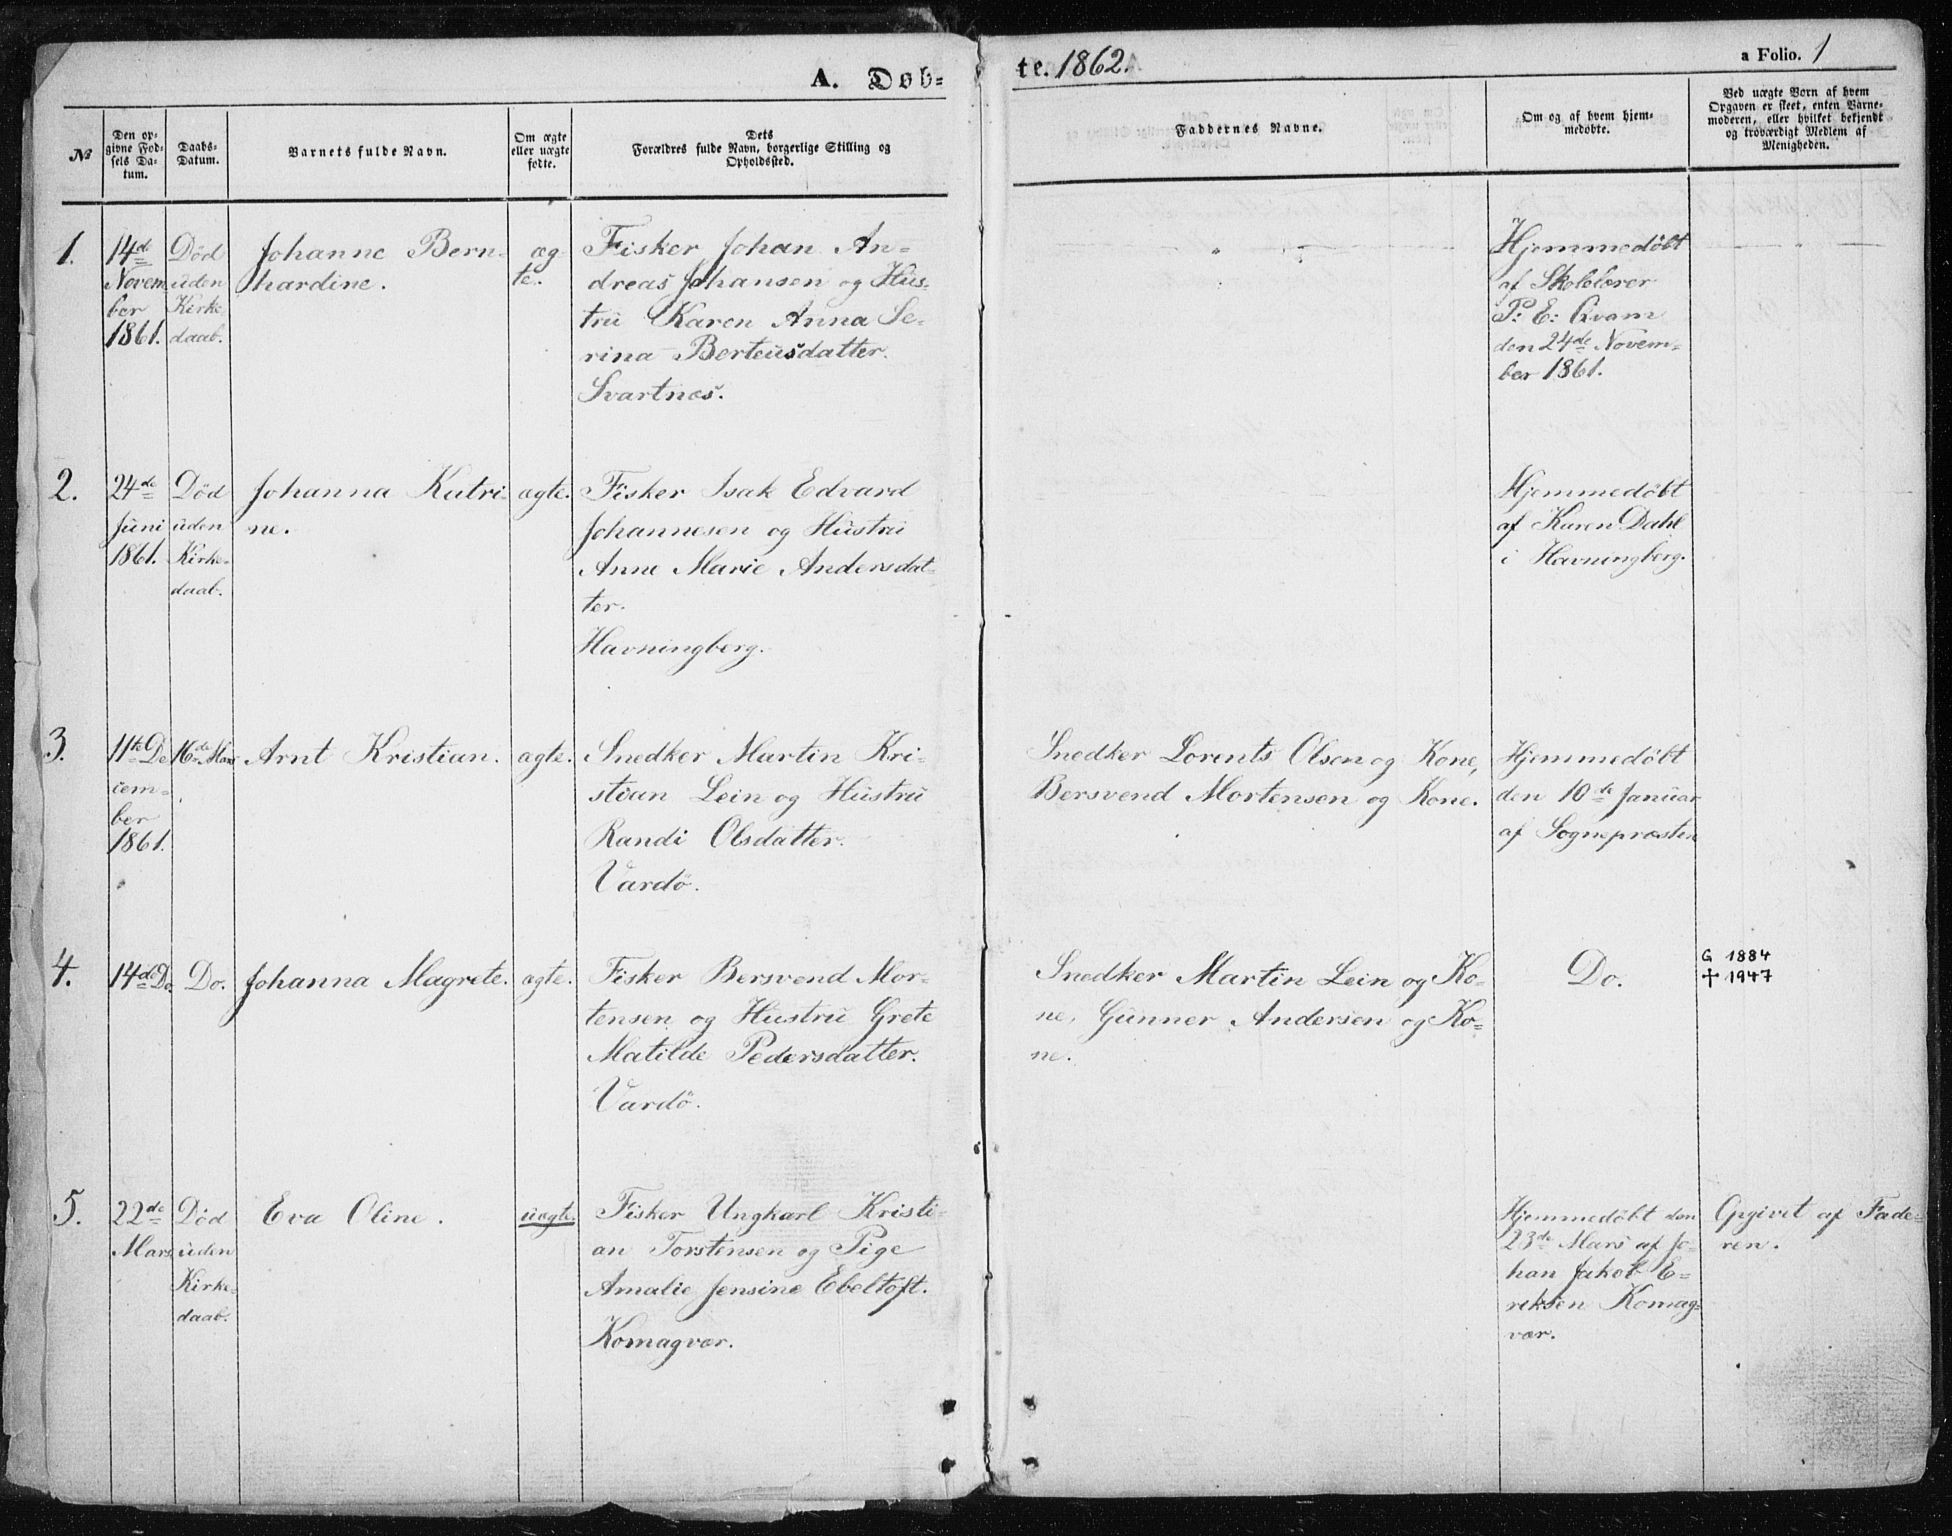 A. Døb-
te. 1862.
a Folio. 1
№
Den op-
givne Fød-
sels Da-
tum.
Daabs-
Datum.
Barnets fulde Navn.
Om ægte
eller uægte
fødte.
Dets
Forældres fulde Navn, borgerlige Stilling og
Opholdssted.
Faddernes Navne.
Om og af hvem hjem-
medøbte.
Ved uægte Børn af hvem
Opgaven er skeet, enten Barne-
moderen, eller hvilket bekjendt
og troværdigt Medlem af
Menigheden.
1.
14d
Novem
ber
1861.
Død
uden
Kirke
daab.
Johanne Bern-
hardine.
æg-
te.
Fisker Johan An-
dreas Johansen og Hus-
tru Karen Anna Se-
rina Berteusdatter.
Svartnes.
Hjemmedøbt
af Skolelærer
P: E: Qvam
den 24de Novem-
ber 1861.
2.
24de
Juni
1861.
Død
uden
Kirke-
daab.
Johanna Katri-
ne.
ægte.
Fisker Isak Edvard
Johannesen og Hustru
Anne Marie Andersdat-
ter.
Havningberg.
Hjemmedøbt
af Karen Dahl
i Havningberg.
3.
11te De
cem-
ber
1861.
16de Mars
Arnt Kristian.
ægte.
Snedker Martin Kri-
stian Lein og Hustru
Randi Olsdatter.
Vardö.
Snedker Lorents Olsen og Kone,
Bersvend Mortensen og Kone.
Hjemmedøbt
den 10de Januar
af Sognepræsten
4.
14de Do.
Do.
Johanna Magrete.
ægte.
Fisker Bersvend Mor-
tensen og Hustru Grete
Matilde Pedersdatter.
Vardö.
Snedker Martin Lein og Ko-
ne, Gunner Andersen og Ko-
ne.
Do.
G 1884
† 1947
5.
22de
Mars
Død
uden
Kirke-
daab.
Eva Oline.
uægte.
Fisker Ungkarl Kristi-
an Torstensen og Pige
Amalie Jensine Ebeltoft.
Komagvær.
Hjemmedøbt den
23de Mars af Jo-
han Jakob E-
riksen Komag-
vær.
Opgivet af Fade-
ren.